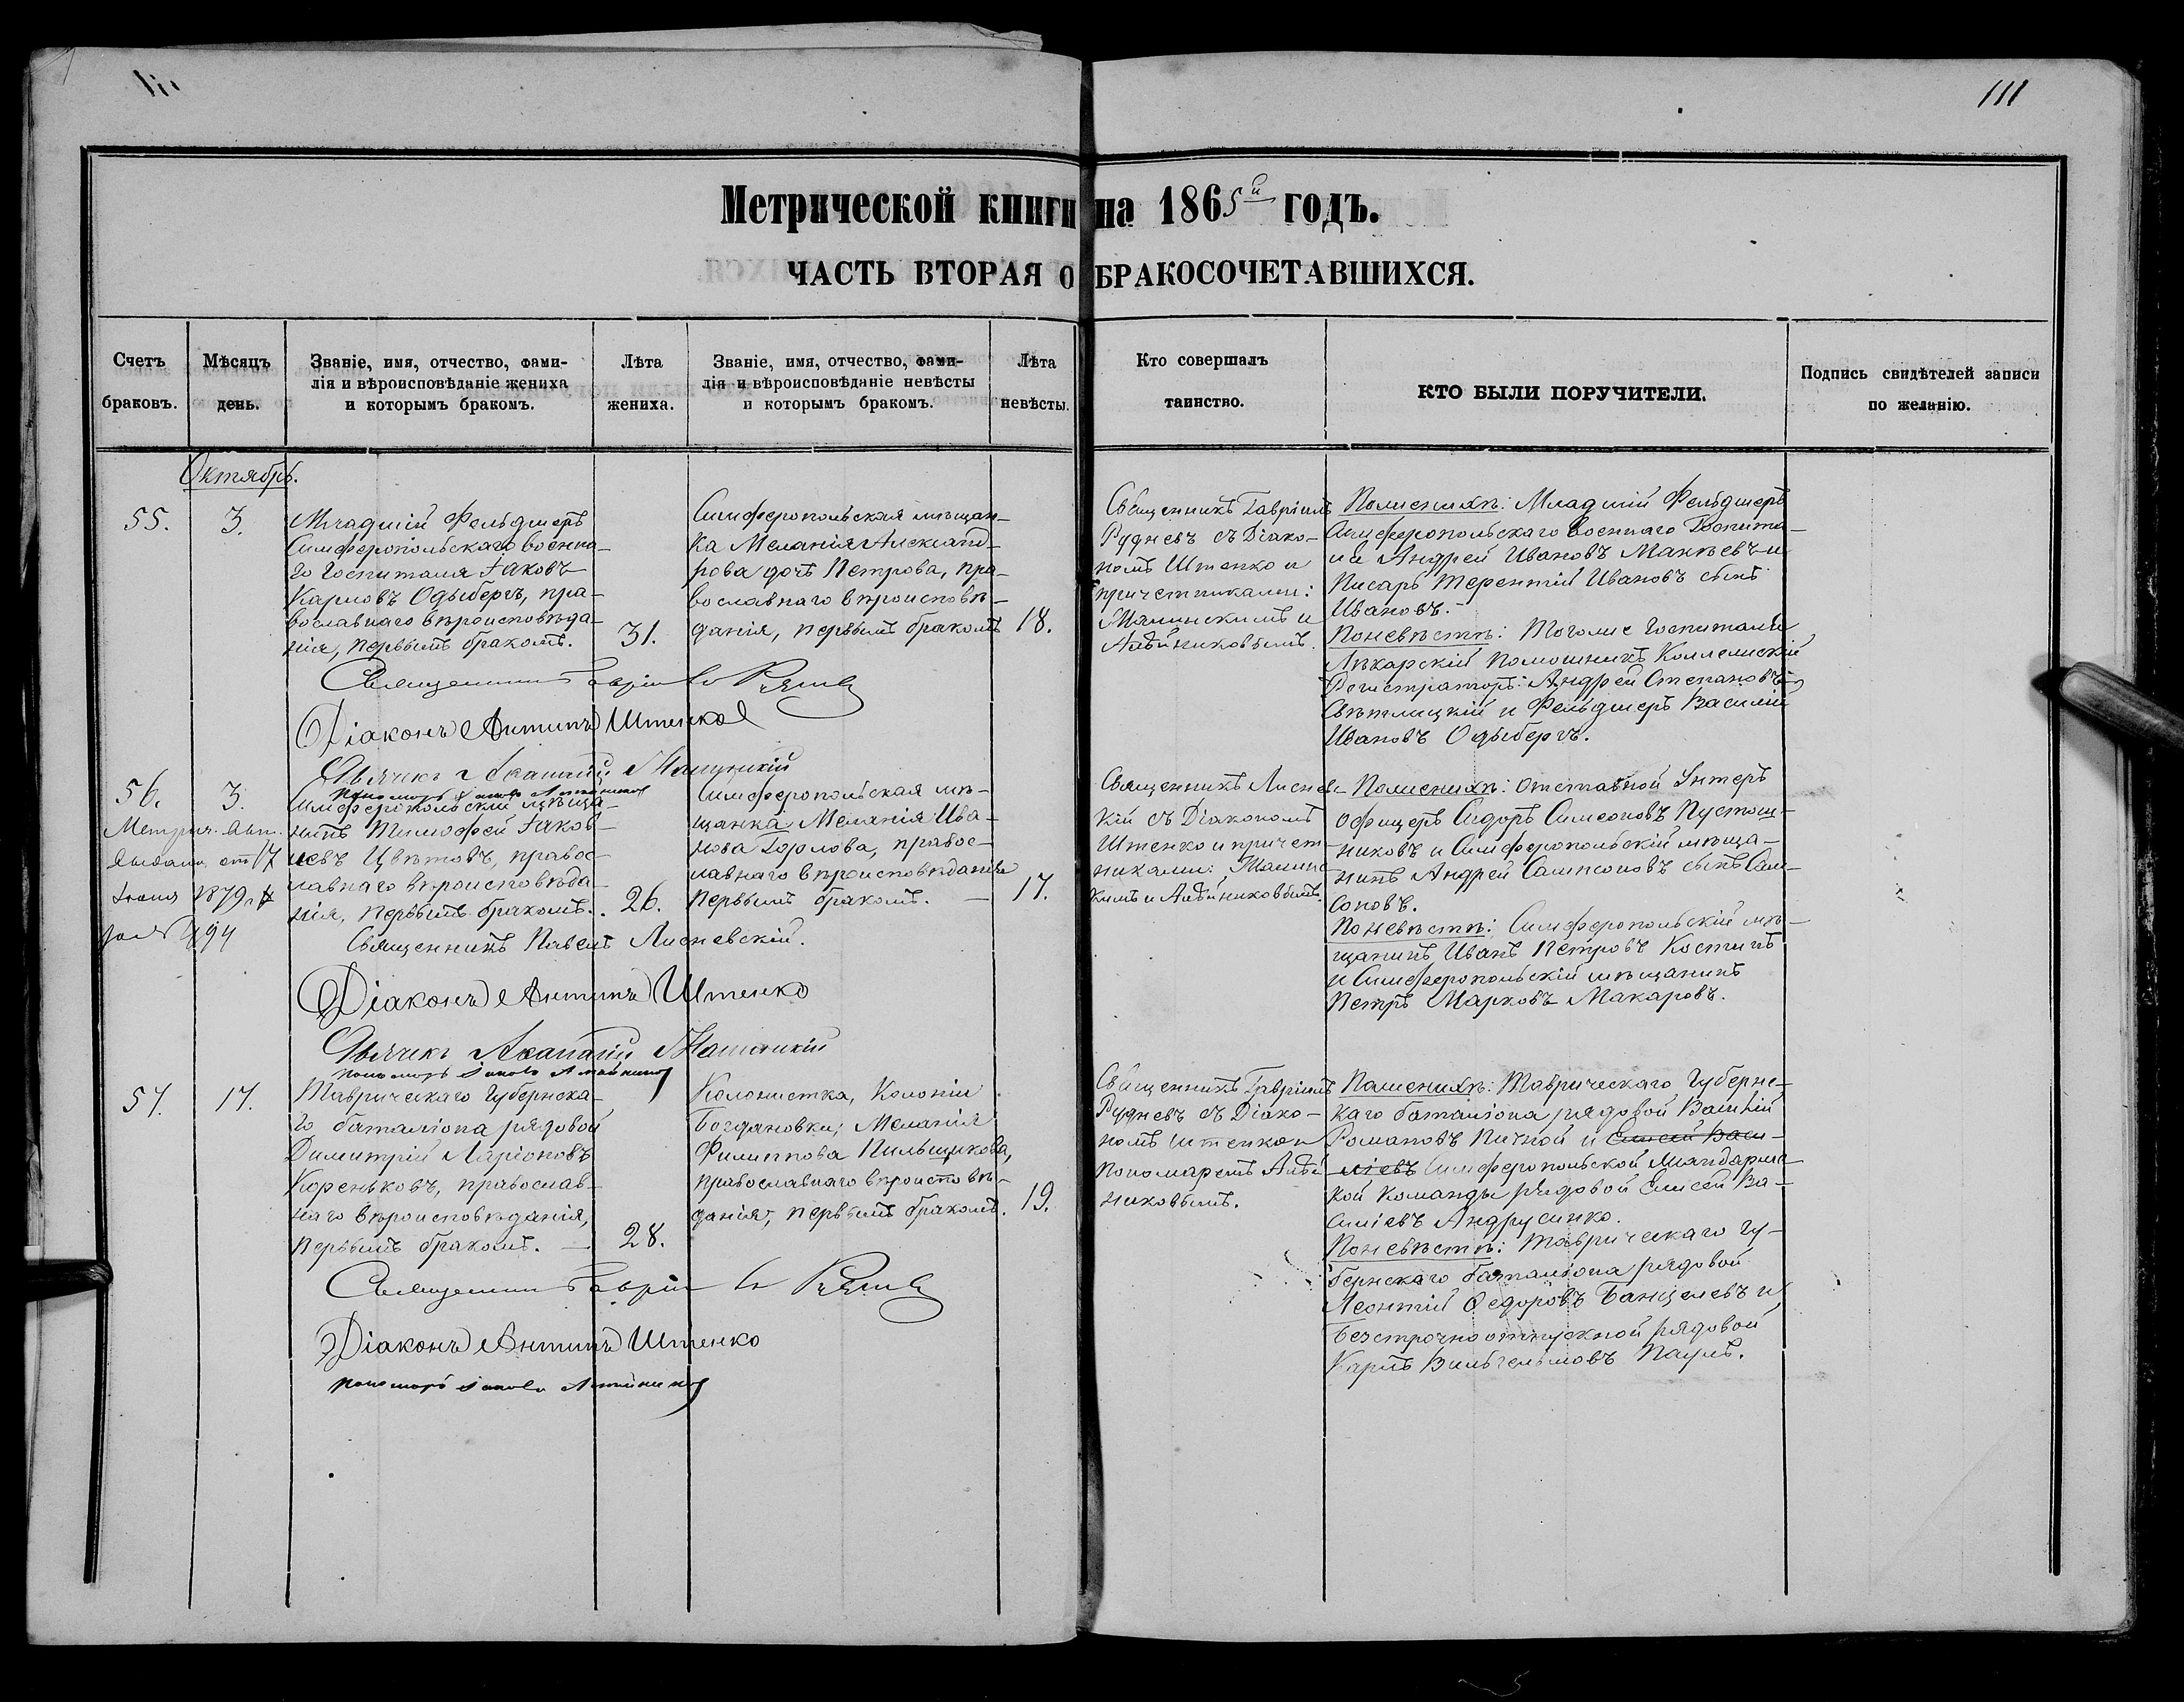 111
Метрической книги на 1865й годъ.
ЧАСТЬ ВТОРАЯ О БРАКОСОЧЕТАВШИХСЯ.
Счетъ
браковъ.
Мѣсяцъ
день.
Званіе, имя, отчество, фами-
лія и вѣроисповѣданіе жениха
и которымъ бракомъ.
Лѣта
жениха.
Званіе, имя, отчество, фами-
лія и вѣроисповѣданіе невѣсты
и которымъ бракомъ.
Лѣта
невѣсты.
Кто совершалъ
таинство.
КТО БЫЛИ ПОРУЧИТЕЛИ.
Подпись свидѣтелей записи
по желанію.
Октябрь.
55.
3.
Младшій Фельдшеръ
Симферопольскаго военна-
го госпиталя Іаковъ
Карловъ Одыбергъ, пра-
вославнаго вѣроисповѣда-
нія, первымъ бракомъ.
31.
Симферопольская мѣщан-
ка Меланія Александ-
рова дочь Петрова, пра-
вославнаго вѣроисповѣ-
данія, первымъ бракомъ
18.
Священникъ Гавріилъ
Рудневъ съ Діако-
номъ Штенко и
причетниками:
Алейниковымъ.
Поженихѣ: Младшій Фельдшеръ
Симферопольскаго военнаго Госпита-
ля Андрей Ивановъ Макѣевъ и
Писарь Терентій Ивановъ сынъ
Ивановъ.
Поневѣстѣ: Тогоже госпиталя
Лѣкарскій помошникъ Коллежскій
Регистраторъ: Андрей Степановъ
Свѣтлицкій и Фельдшеръ Василій
Ивановъ Одыбергъ.
Священникъ Гавріилъ Рудневъ
Діаконъ Антипъ Штенко
56.
3.
Метрич. вып.
выдана от 17
Іюня 1879 г
за № 494
Симферопольскій мѣща-
нинъ Тимофей Іаков-
левъ Цвѣтовъ, правос-
лавнаго вѣроисповѣда-
нія, первымъ бракомъ.
26.
Симферопольская мѣ-
щанка Меланія Ива-
нова Горлова, правос-
лавнаго вѣроисповѣданія
первымъ бракомъ.
17.
Священникъ Лиснев-
кій съ Діакономъ
Штенко и причет-
никами:
кимъ и Алейниковымъ.
Поженихѣ: отставной Унтеръ
офицеръ Сидоръ Симеоновъ Пустош-
никовъ и Симферопольскій мѣща-
нинъ Андрей Сампсоновъ сынъ Сам-
соновъ.
Поневѣстѣ: Симферопольскій мѣ-
щанинъ Иванъ Петровъ Костинъ
и Симферопольскій мѣщанинъ
Петръ Марковъ Макаровъ.
Священникъ Павелъ Лисневскій.
Діаконъ Антипъ Штенко
57.
17.
Таврическаго Губернска-
го баталіона рядовой
Димитрій Ларіоновъ
Кореньковъ, православ-
наго вѣроисповѣданія,
первымъ бракомъ.
28.
Колонистка, Колоніи
Богдановки, Меланія
Филиппова Пильщикова,
православнаго вѣроисповѣ-
данія, первымъ бракомъ.
19.
Священникъ Гавріилъ
Рудневъ съ Діако-
номъ Штенко и
Пономаремъ Алей-
никовымъ.
Поженихѣ: Таврическаго Губернс-
каго баталіона рядовой Василій
Романовъ Пичной и Елисей Васи-
ліевъ Симферопольской Жандармс-
кой Команды рядовой Елисей Ва-
силіевъ Андрусенко.
Поневѣстѣ: Таврическаго Гу-
бернскаго баталіона рядовой
Леонтій Ѳедоровъ Банцелевъ и
Безсрочноотпускной рядовой
Карлъ Вильгельмовъ Паулъ.
Священникъ Гавріилъ Рудневъ
Діаконъ Антипъ Штенко